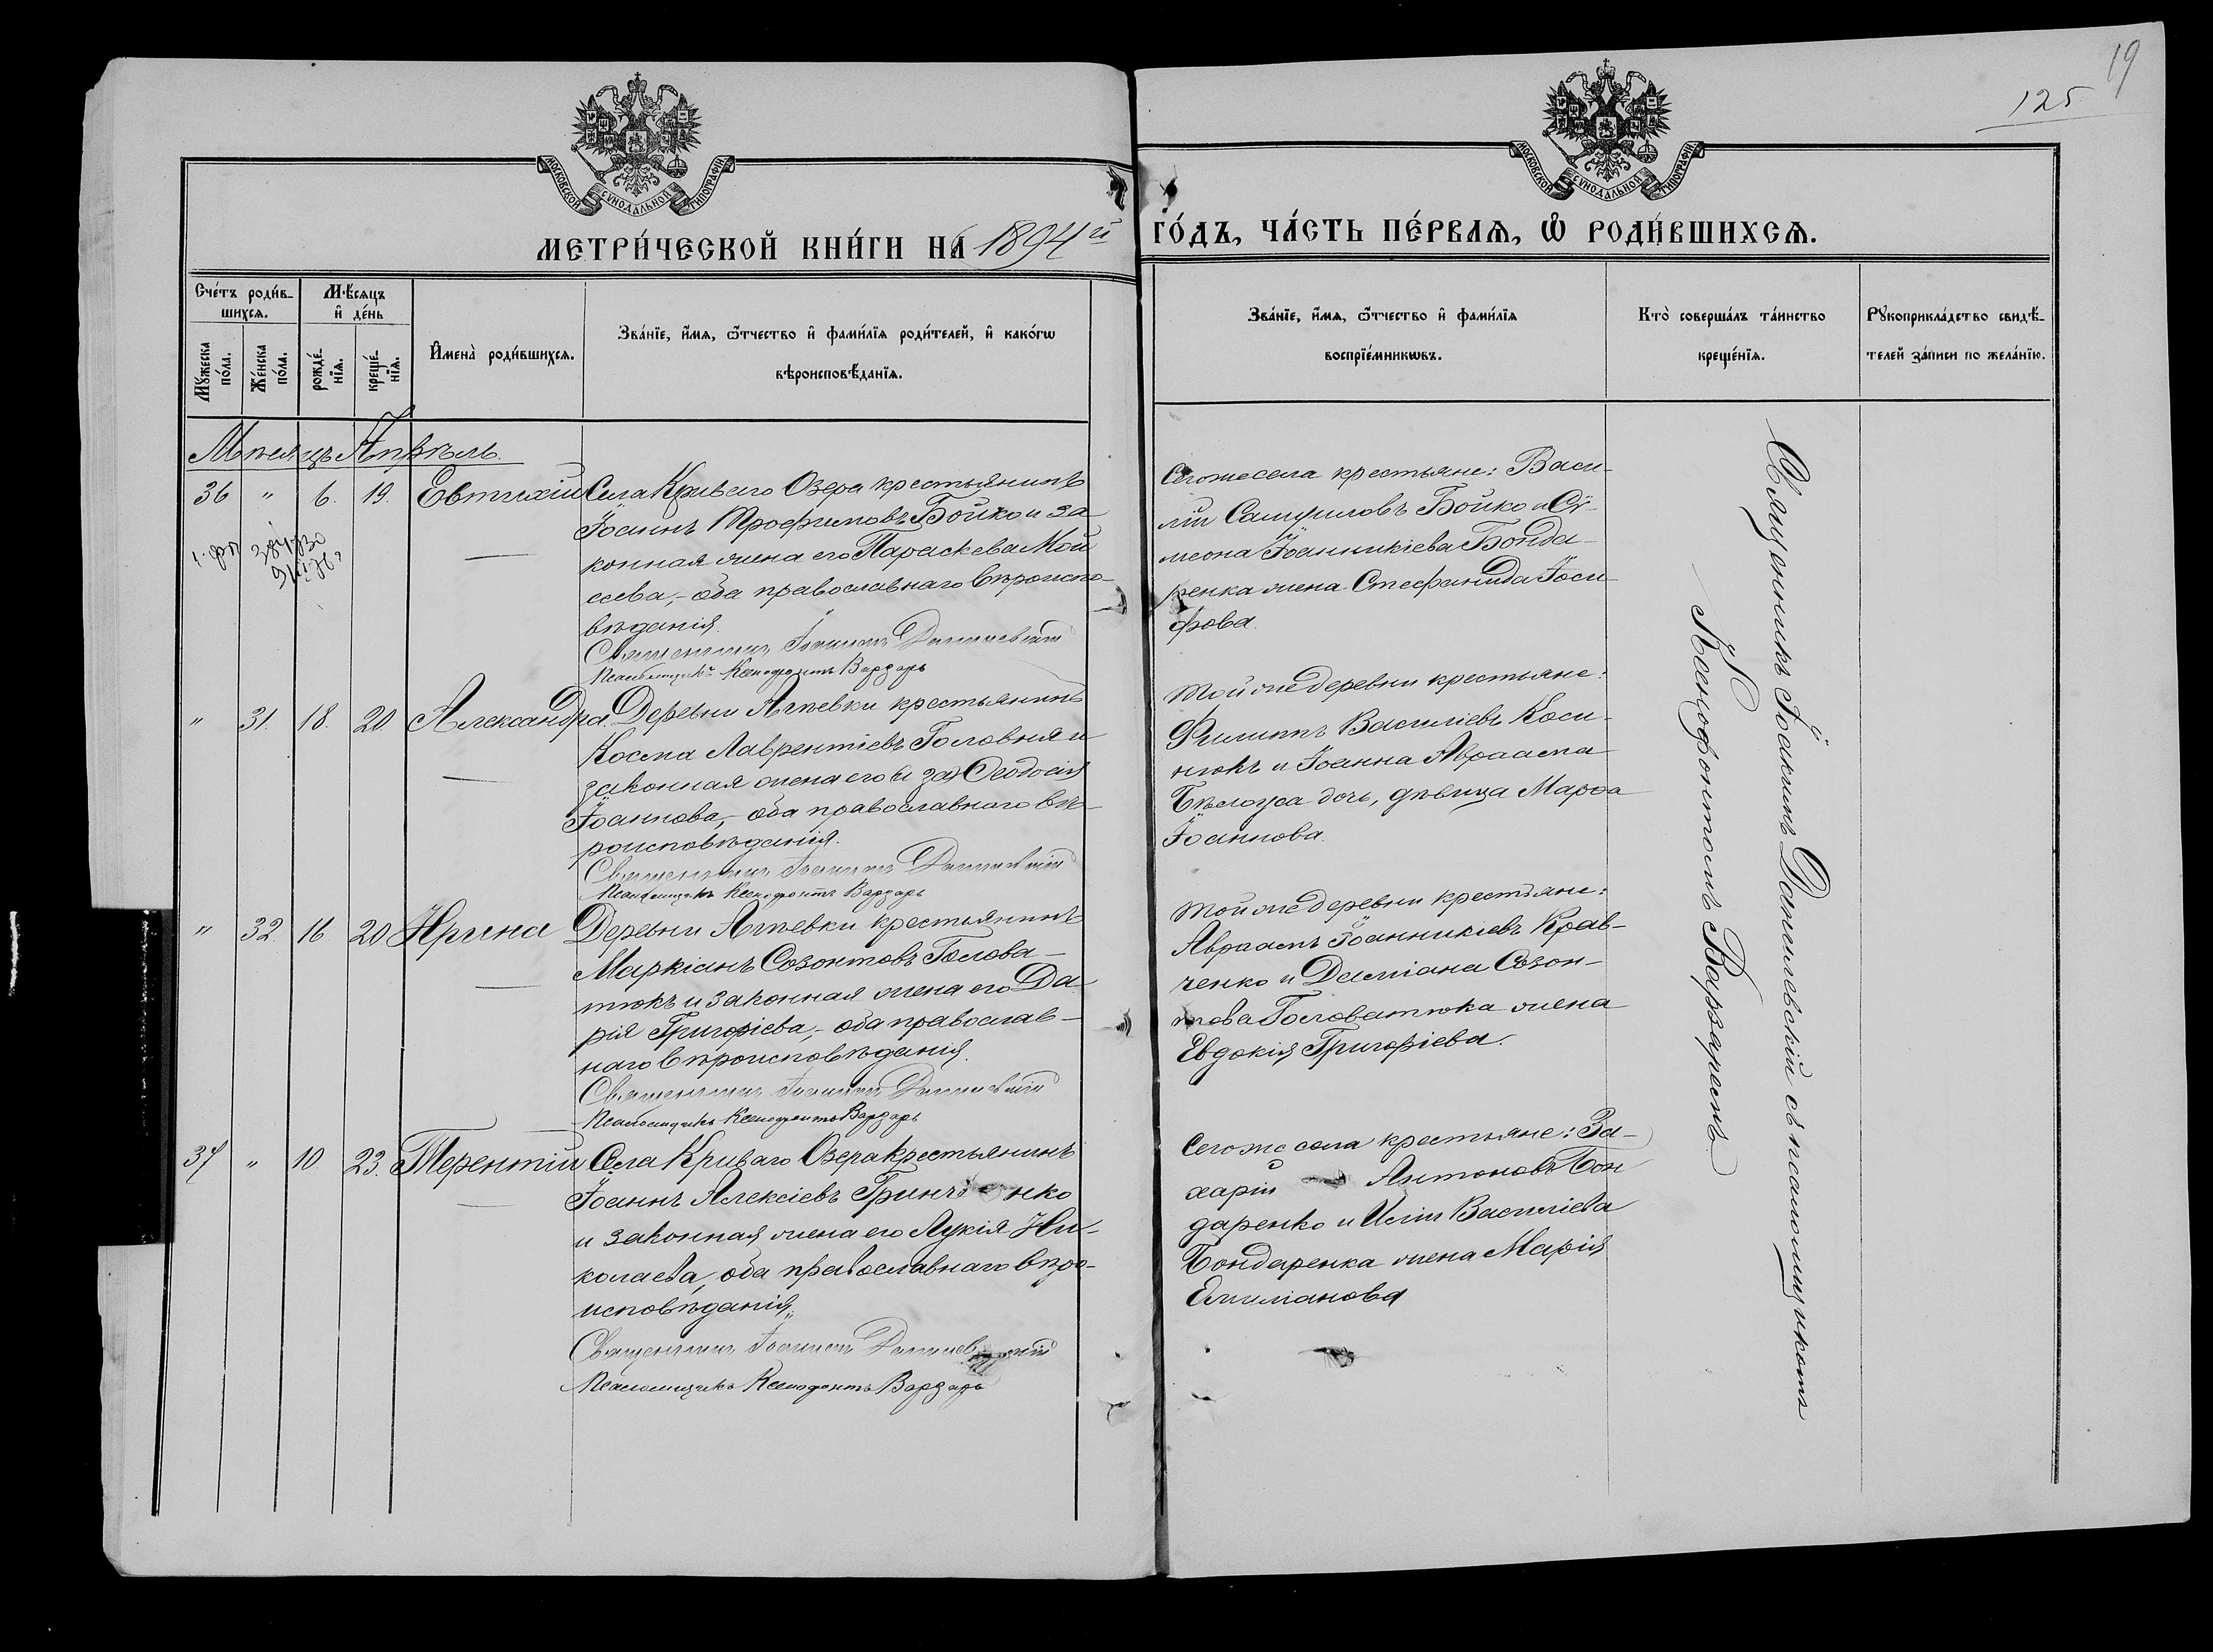 19
125
МОСКОВСКОЙ СѴНОДАЛЬНОЙ ТИПОГРАФІИ
МОСКОВСКОЙ СѴНОДАЛЬНОЙ ТИПОГРАФІИ
МЕТРИ́ЧЕСКОЙ КНИ́ГИ НА 1894й ГО́ДЪ, ЧА́СТЬ ПЕ́РВАѦ, Ѡ РОДИ́ВШИХСѦ.
Сче́тъ роди́в-
шихсѧ.
Мꙋ́жеска по́ла.
Же́нска по́ла.
Мѣ́сѧцъ и҆ де́нь
рожде́-нїѧ.
креще́-нїѧ.
И҆мена̀ роди́вшихсѧ.
Зва́нїе, и҆́мѧ, ѻ҆́тчество и҆ фами́лїѧ роди́телей, и҆ како́гѡ
вѣроисповѣ́данїѧ.
Зва́нїе, и҆́мѧ, ѻ҆́тчество и҆ фами́лїѧ
воспрїе́мникѡвъ.
Кто̀ соверша́лъ та́инство
креще́нїѧ.
Рꙋкоприкла́дство свидѣ́-
телей за́писи по жела́нїю.
Мѣсяцъ Апрѣль.
36 " 6. 19. Евтихій
Села Криваго Озера крестьянинъ
Іоаннъ Трофимовъ Бойко и за
конная жена его Параскева Мой
сеева,- оба православнаго вѣроиспо-
вѣданія.
Священникъ Іоакимъ Данилевскій
Псаломщикъ Ксенофонтъ Варзарь
Сего же села крестьяне: Васи-
лій Самуиловъ Бойко и Сѵ-
меона Іоанникіева Бонда-
ренка жена Стефанида Іоси-
фова.
" 31. 18. 20. Александра.
Деревни Ягневки крестьянинъ
Косма Лаврентіевъ Головня и
законная жена его Ѳеодосія
Іоаннова,- оба православнаго вѣ-
роисповѣданія.
Священникъ Іоакимъ Данилевскій
Псаломщикъ Ксенофонтъ Варзарь
Той же деревни крестьяне:
Филиппъ Василіевъ Коси-
нюкъ и Іоанна Авраама
Бѣлоуса дочь, дѣвица Марѳа
Іоаннова.
" 32. 16 20 Ирина
Деревни Ягневки крестьянинъ
Маркіанъ Созонтовъ Голова-
тюкъ и законная жена его Да
рія Григоріева,- оба православ-
наго вѣроисповѣданія.
Священникъ Іоакимъ Данилевскій
Псаломщикъ Ксенофонтъ Варзарь
Той же деревни крестьяне:
Авраамъ Іоанникіевъ Крав-
ченко и Даміана Созон-
това Головатюка жена
Евдокія Григоріева.
37 " 10. 23. Терентій
Села Криваго Озера крестьянинъ
Іоаннъ Алексіевъ Гринченко
и законная жена его Лукія Ни-
колаева, оба православнаго вѣро-
исповѣданія.
Священникъ Іоакимъ Данилевскій
Псаломщикъ Ксенофонтъ Варзарь
Сего же села крестьяне: За-
харій Антоновъ Бон
даренко и Иліи Василіева
Бондаренка жена Марія
Емиліанова
Священникъ Іоакимъ Данилевскій съ псаломщикомъ
Ксенофонтомъ Варзаремъ